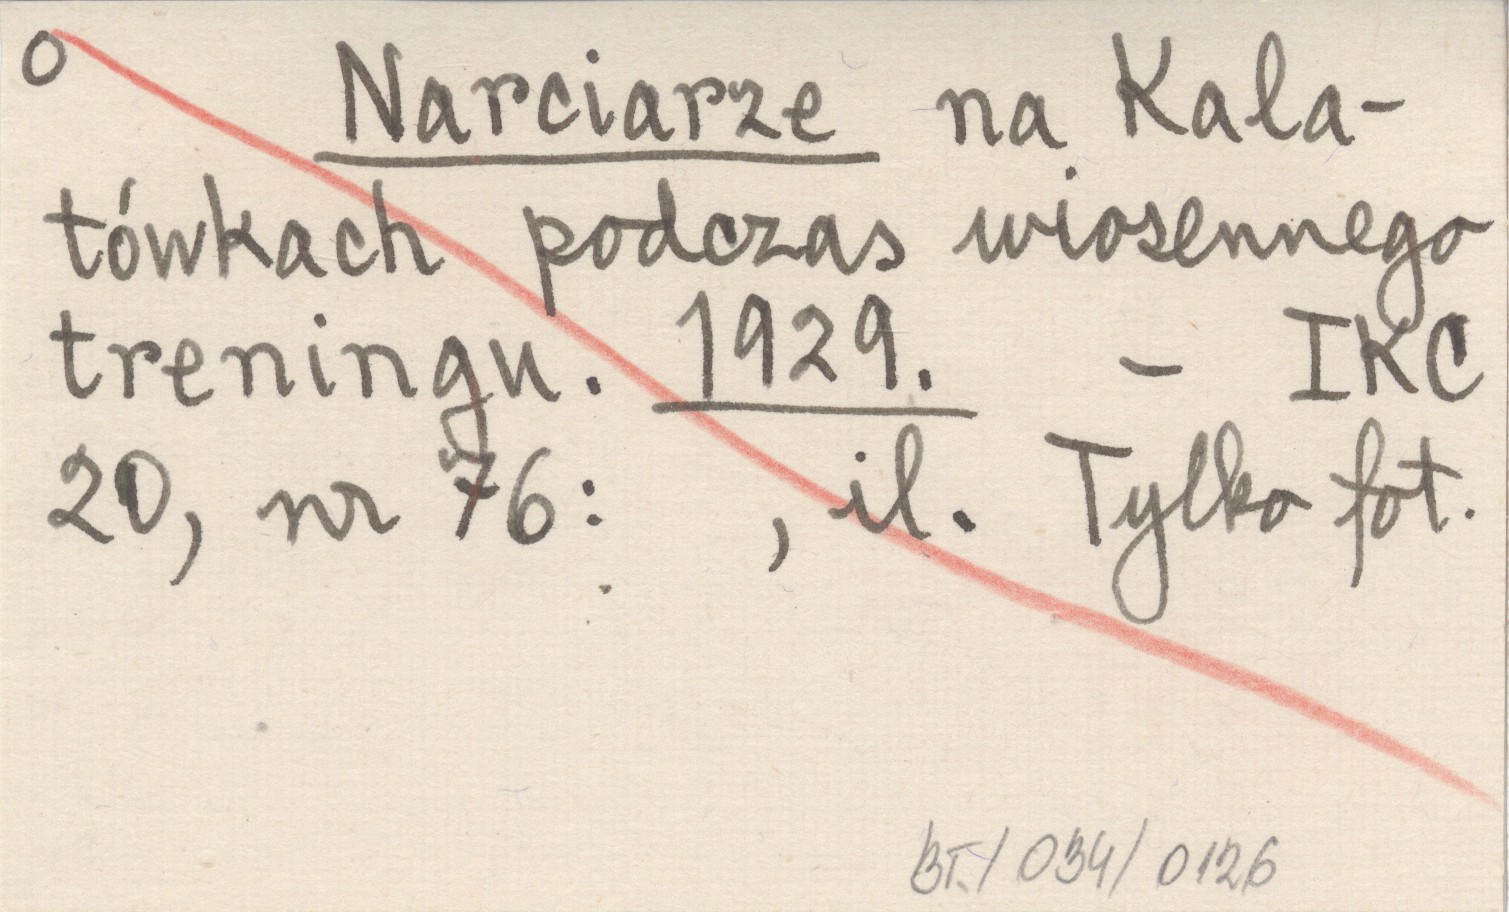 O Narciarze na Kala-
tówkach podczas wiosennego
treningu. 1929. - IKC
20, nr 76: , il. Tylko fot.
BT./034/0126